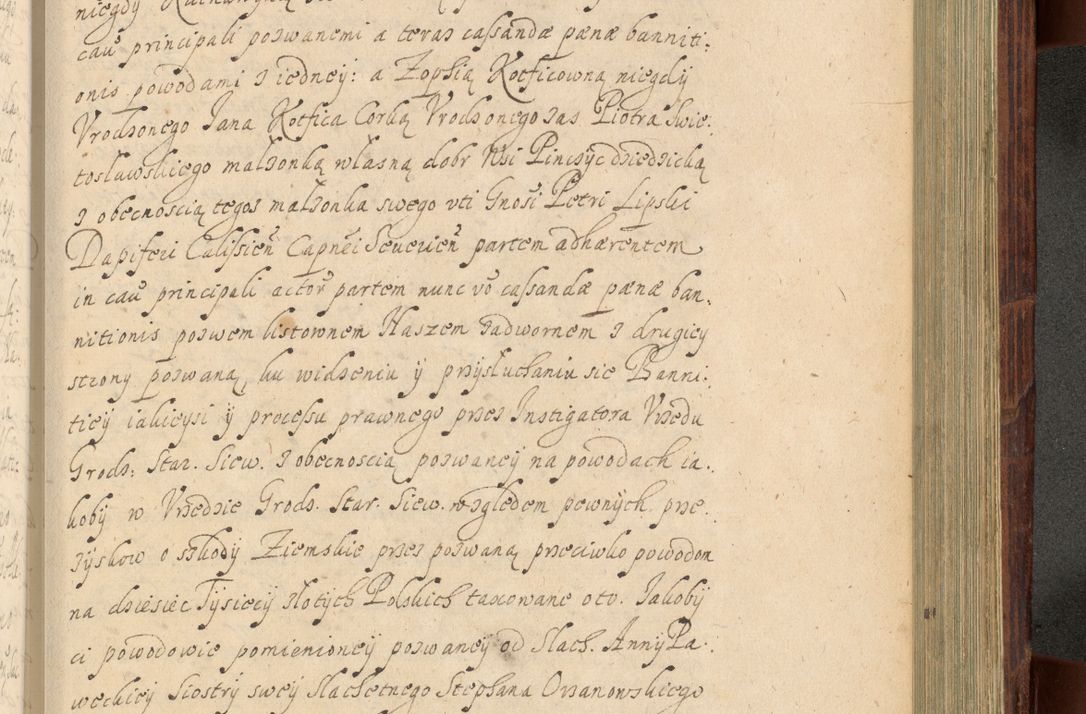 niegdy
cau principali pozwanemi a teraz cassandæ pænæ banniti:
onis powodami z iedney: a Zophią Kotficowną niegdy
Vrodzonego Jana Kotfica Corką Vrodzonego zas Piotra Swie:
tosławskiego małzonką własną dobr Wsi Pinczyc dziedzicką
z obecnoscią tegoz małzonka swego vti Gnosi Petri Lipski
Dapiferi Calissien Capnei Seuerien partem adhærentem
in cau principali actor partem nunc vo cassandæ pænæ ban,
nitionis pozwem listownem Naszem zadwornem z drugiey
strony pozwaną, ku widzeniu y przysłuchaniu sie Banni:
tiey iakieysi y processu prawnego przez Instigatora Vrzędu
Grodz: Star. Siew. z obecnoscią pozwaney na powodach ia.
koby w Vrzedzie Grodz. Star. Siew. względem pewnych prze
zyskow o szkody Ziemskie przez pozwaną przeciwko powodom
na dziesiec Tysiecy złotych Polskich taxowane otv. Jakoby
ci powodowie pomienioney pozwaney od Slach. Anny Pa.
weckiey Siostry swey Slachetnego Stephana Orzanowskiego